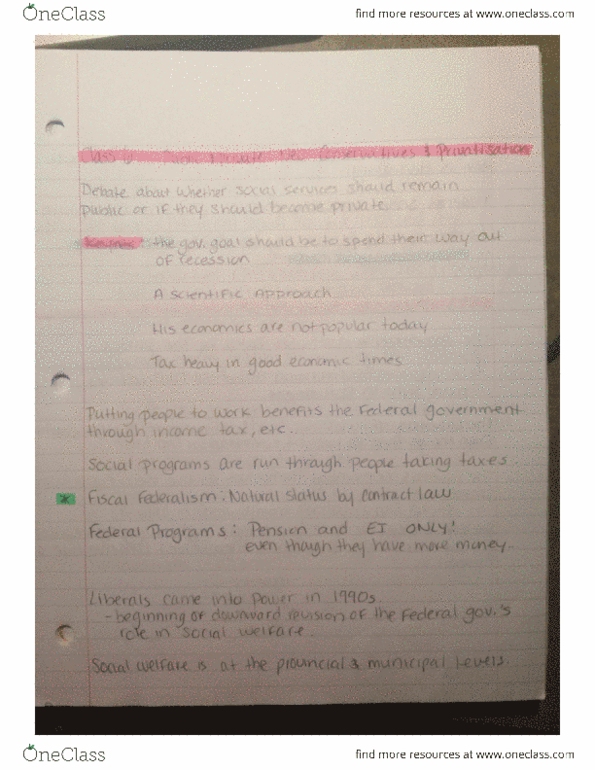 OneClass
find more resources at www.oneclass.com
Class 6: Public & Private: New Conservatives & Privitisation
Debate about whether social services should remain
public or if they should become private.
Keynes: the gov. goal should be to spend their way out
of recession
A scientific approach
His economics are not popular today
Tax heavy in good economic times
Putting people to work benefits the Federal government
through income tax, etc.
Social programs are run through people taking taxes.
* Fiscal Federalism: Natural status by contract law
Federal Programs: Pension and EI ONLY!
even though they have more money.
Liberals came into power in 1990s.
- beginning of downward revision of the Federal gov.'s
role in social welfare.
Social welfare is at the provincial & municipal levels.
OneClass
find more resources at www.oneclass.com